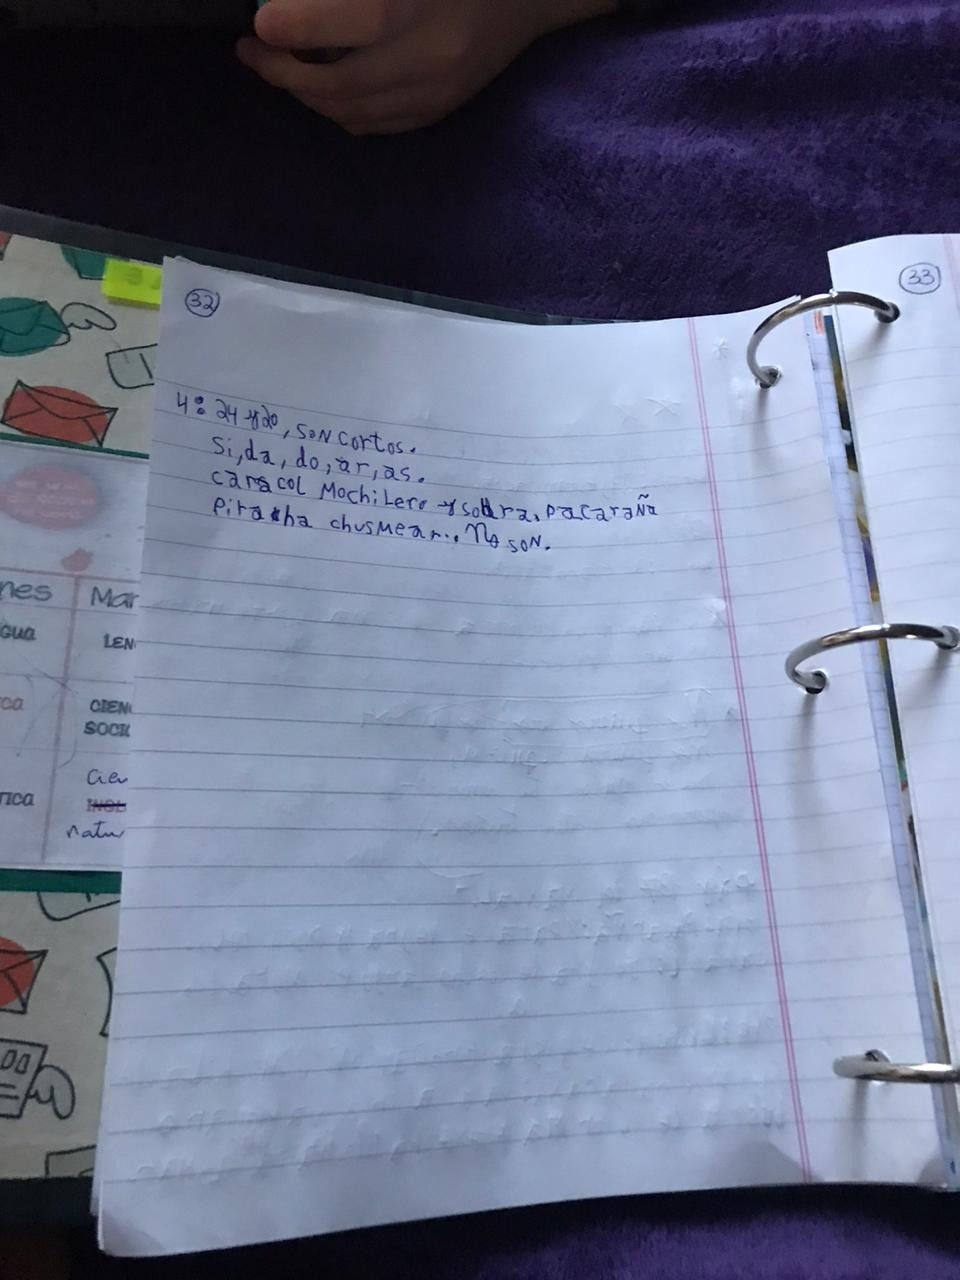 32
33
4: 24 y 20, SON cortos.
Si, da, do, ar, as.
caracol Mochilero y sobra, pacaraña
Piracha chusmear.. No SON.
nes Mar
gua LEN
ca CIEN
SOCI
Cien
rica INGL
natu